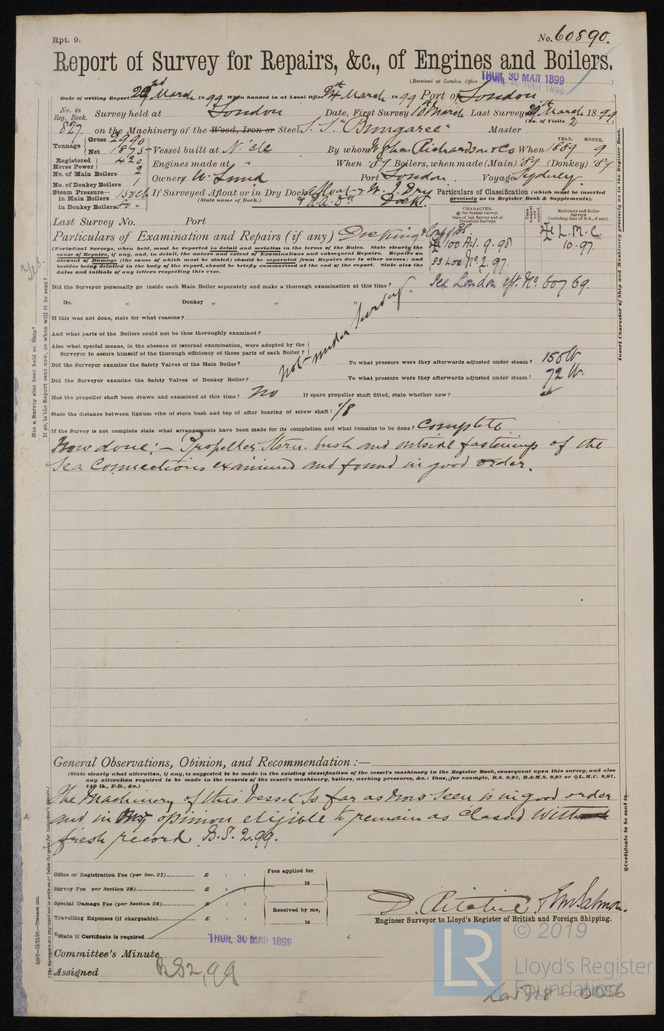 Rpt. 9.
No. 60890.
Report of Survey for Repairs, &c., of Engines and Boilers.
(Received at London Office THUR. 30 MAR 1899
Date of writing Report 29th March 1899 When handed in at Local Office March 1899 Port of London
No. in Reg. Book. Survey held at London Date, First Survey March Last Survey March 1899
(No. of Visits 2)
827 on the Machinery of the Wood, Iron or Steel S.S. "Bungaree" Master
Tonnage Gross 2990 Net 1893 Vessel built at N'cle By whom Wigham Richardson & Co When YEAR. 1889 MONTH. 9
Registered Horse Power 420 Engines made at " When 89 Boilers, when made (Main) 89 (Donkey) 89
No. of Main Boilers 2 Owners W. Lund Port London Voyage Sydney
No. of Donkey Boilers
Steam Pressure in Main Boilers 150 lb If Surveyed Afloat or in Dry Dock Afloat & Dry Dock
in Donkey Boilers (State name of Dock.)
Particulars of Classification (which must be inserted precisely as in Register Book & Supplements).
Last Survey No. Port
Particulars of Examination and Repairs (if any) Docking
CHARACTER.
Machinery and Boiler Surveys
100 A1. 9.98
SS Lon No. 2.97.
L.M.C.
10.97
(Periodical Surveys, when held, must be reported in detail and seriatim in the terms of the Rules. State clearly the
cause of Repairs, if any, and, in detail, the nature and extent of Examinations and subsequent Repairs. Repairs on
account of Damage (the cause of which must be stated) should be separated from Repairs due to other causes; and
besides being detailed in the body of the report, should be briefly summarized at the end of the report. State also the
dates and initials of any letters respecting this case.
Did the Surveyor personally go inside each Main Boiler separately and make a thorough examination at this time? See London rpt. No. 60769.
Do. " Donkey " "
If this was not done, state for what reasons?
And what parts of the Boilers could not be thus thoroughly examined?
not under survey.
Also what special means, in the absence of internal examination, were adopted by the
Surveyor to assure himself of the thorough efficiency of those parts of each Boiler?
Did the Surveyor examine the Safety Valves of the Main Boiler? To what pressure were they afterwards adjusted under steam? 150 lb
Did the Surveyor examine the Safety Valves of Donkey Boiler? To what pressure were they afterwards adjusted under steam? 72 lb
Has the propeller shaft been drawn and examined at this time? No If spare propeller shaft fitted, state whether new?
State the distance between lignum vitæ of stern bush and top of after bearing of screw shaft? 1/8
If the Survey is not complete state what arrangements have been made for its completion and what remains to be done? Complete
Now done:— Propeller, Stern bush and outside fastenings of the
Sea Connections examined and found in good order.
General Observations, Opinion, and Recommendation:—
(State clearly what alteration, if any, is suggested to be made in the existing classification of the vessel's machinery in the Register Book, consequent upon this survey, and also
any alteration required to be made in the records of the vessel's machinery, boilers, working pressures, &c.; thus, for example, B.S. 9,97, B.&M.S. 9,97 or L.M.C. 9,97,
140 lb., F.D., &c.)
The Machinery of this Vessel so far as now seen is in good order
and in my opinion eligible to remain as classed with
fresh record B.S. 2.99.
Office or Registration Fee (per Sec. 27) £ Fees applied for
Survey Fee per Section 28) £ 18
Special Damage Fee (per Section 28) £ Received by me,
Travelling Expenses (if chargeable) £ 18
D. Ritchie,
Engineer Surveyor to Lloyd's Register of British and Foreign Shipping.
State if Certificate is required
THUR. 30 MAR 1899
Committee's Minute
Assigned BS 2,99
© 2019
LR
Lloyd's Register
Foundation